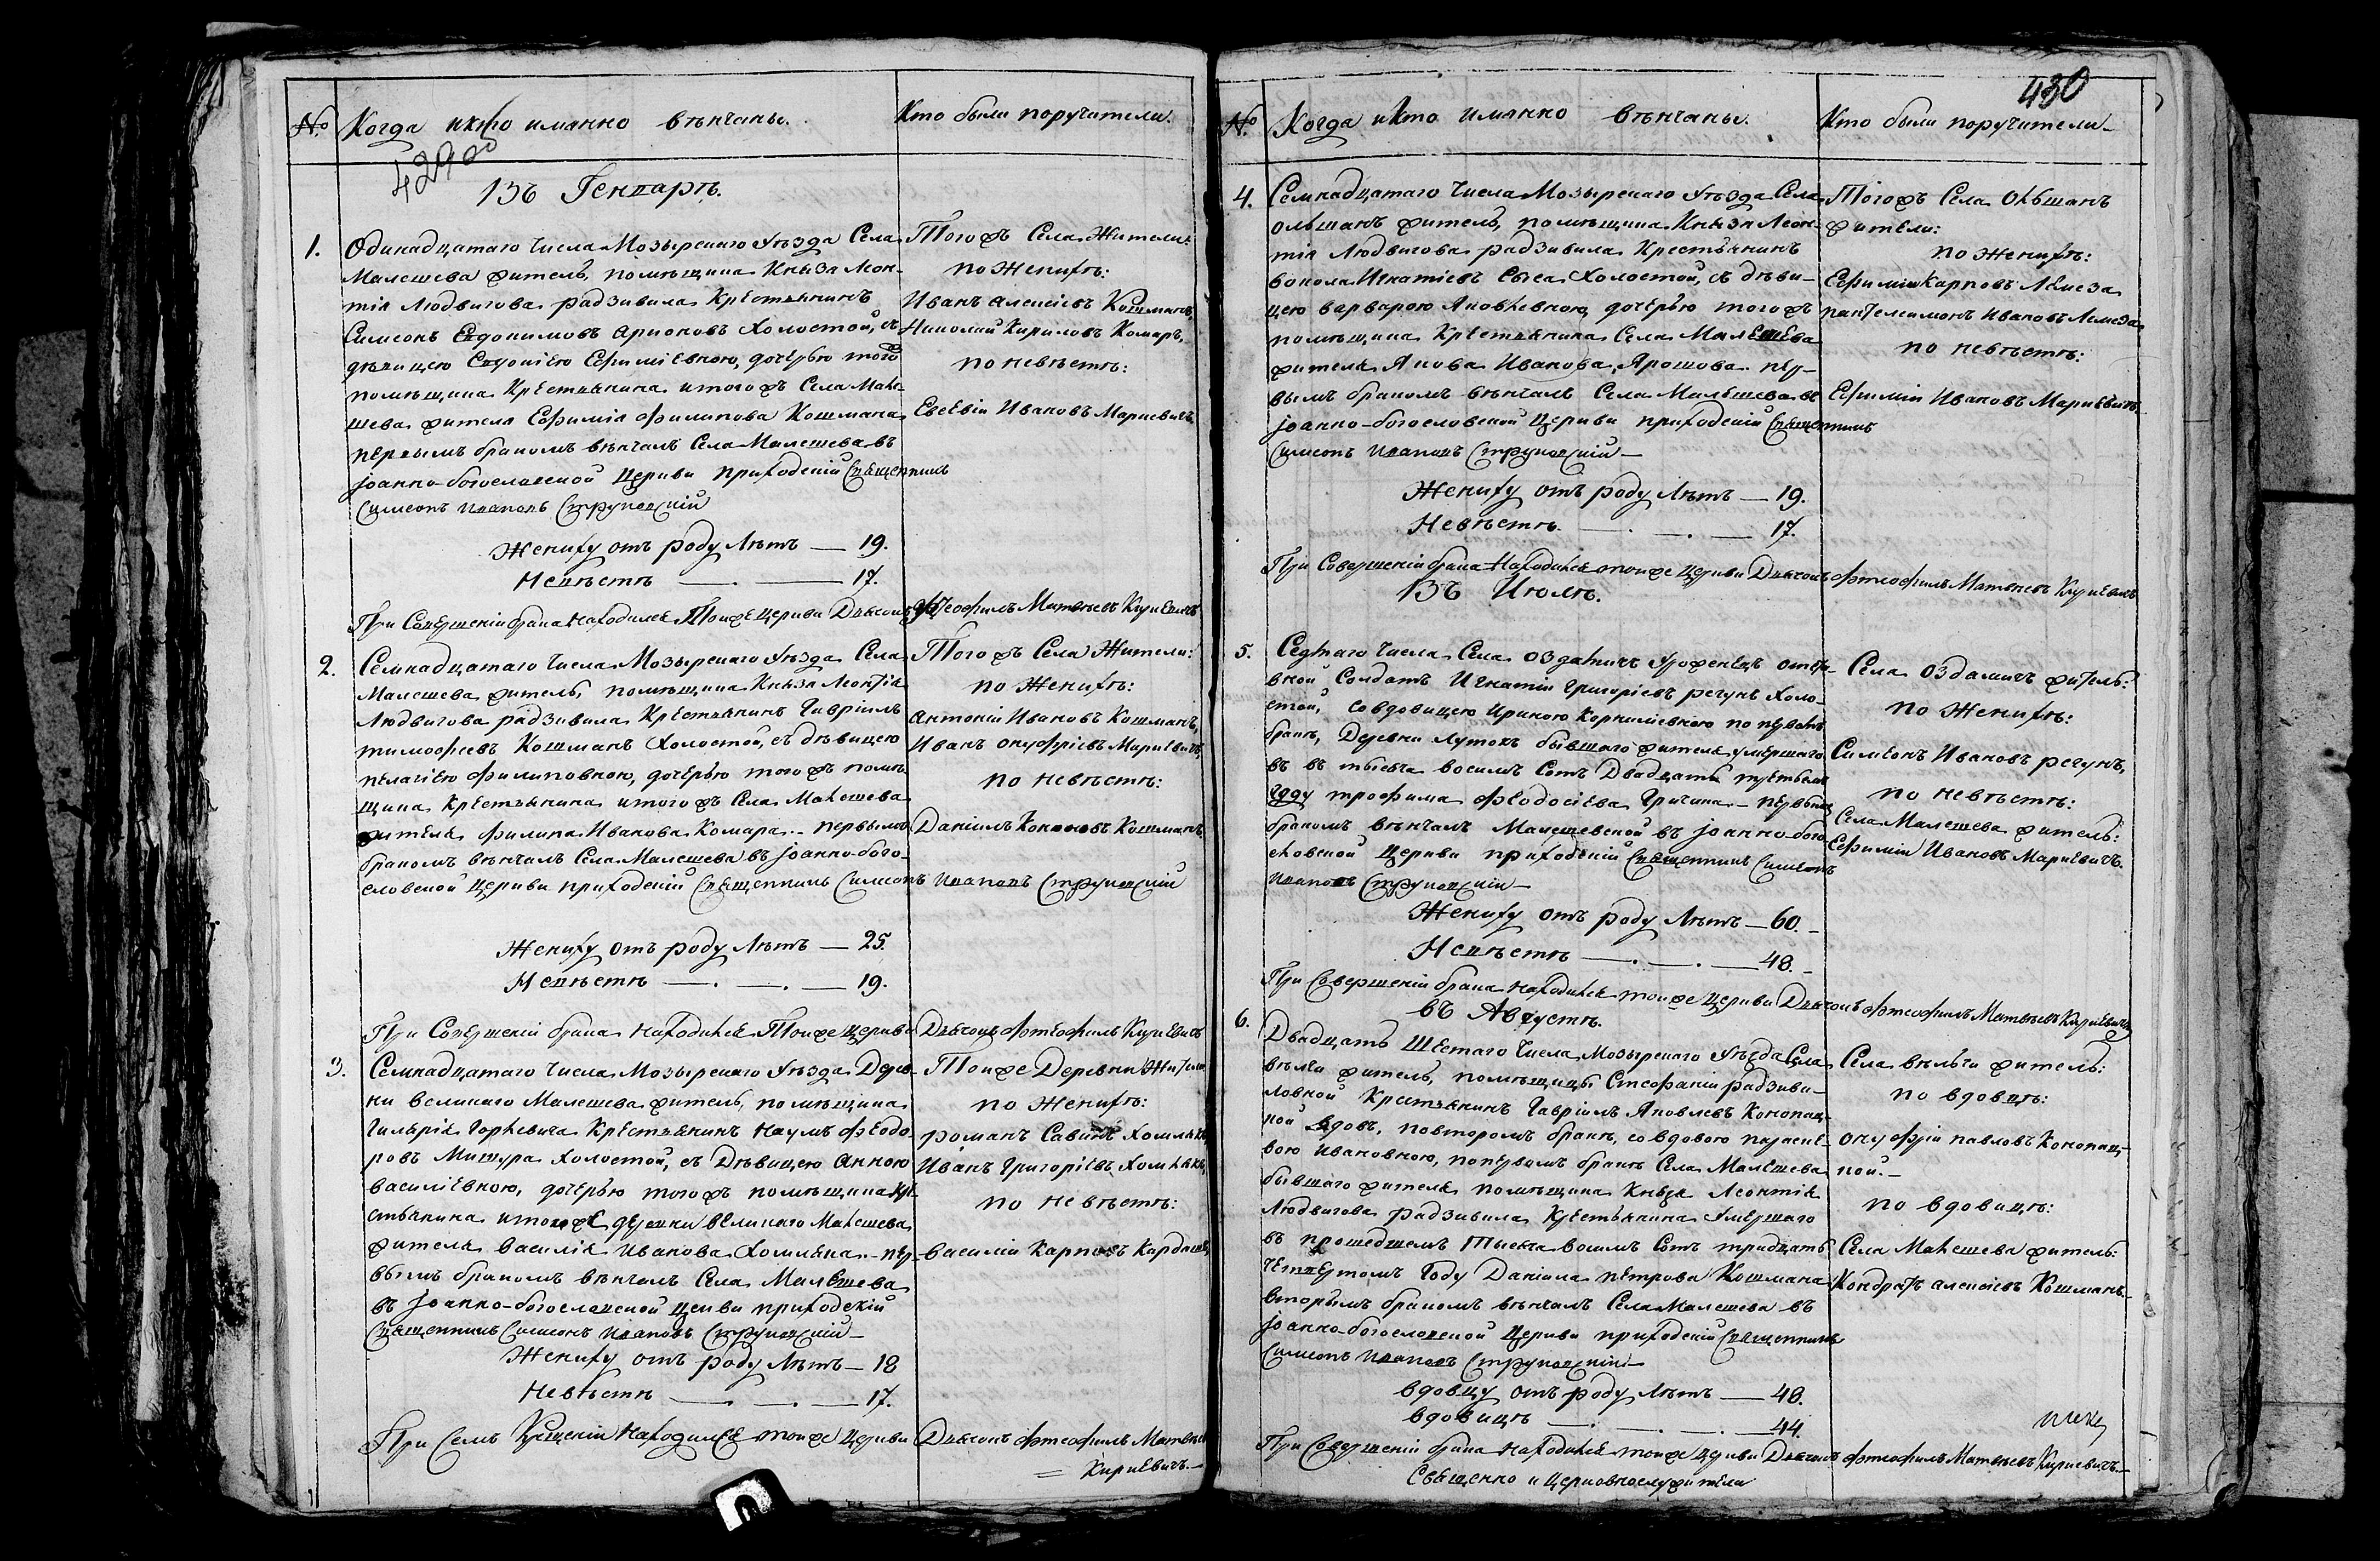 №
Когда и кто иманно вѣнчаны.
Кто были поручители.
429 об
Въ Генварѣ.
1.
Одинадцатаго Числа Мозырскаго Уѣзда Села
Малешева житель, помѣщика Князя Леон-
тія Людвигова радзивила Крестьянинъ
Симеонъ Евдокимовъ Холостой, съ
дѣвицею Ефиміевною, дочерью того
помѣщика Крестьянина итогожъ Села Мале-
шева жителя Ефимія филипова Кошмана
первымъ бракомъ вѣнчалъ Села Малешева въ
Іоанно-богословской Церкви приходскій Священникъ
Симеонъ Ивановъ Струковскій
Жениху отъ роду Лѣтъ — 19.
Невѣстѣ — . — 17.
При Совершеніи брака находился Тоиже Церкви Дьячокъ Фтеофилъ Матвѣевъ Куриевичъ
Тогожъ Села Жители:
по Женихѣ:
Иванъ алексіевъ Кошманъ,
Николай Кириловъ Комаръ,
по невѣстѣ:
Евсевіи Ивановъ Мариевичъ,
2.
Семнадцатаго Числа Мозырскаго Уѣзда Села
Малешева житель, помѣщика Князя Леонтія
Людвигова радзивила Крестьянинъ Гавріилъ
тимофѣевъ Кошманъ Холостой, съ дѣвицею
пелагіею филиповною, дочерью тогожъ помѣ-
щика Крестьянина итогожъ Села Малешева
жителя филипа Иванова Комара. – первымъ
бракомъ вѣнчалъ Села Малешева въ Іоанно-бого-
словской Церкви приходскій Священникъ Симеонъ Ивановъ Струковскій
Жениху отъ роду Лѣтъ — 25.
Невѣстѣ — . — . — 19.
При Совершеніи брака находился Тоиже Церкви Дьячокъ Фтеофилъ Куриевичъ
Тогожъ Села Жители:
по Женихѣ:
антоніи Ивановъ Кошманъ,
Иванъ онуфріевъ Мариевичъ,
по невѣстѣ:
Даніилъ Кононовъ Кошманъ.
3.
Семнадцатаго Числа Мозырскаго Уѣзда Дерев-
ни великаго Малешева житель, помѣщика
Гильярія Горкевича Крестьянинъ Наумъ Феодо-
ровъ Мишура Холостой, съ Дѣвицею Анною
василіевною, дочерью тогожъ помѣщика Кре-
стьянина итоиже деревни великаго Малешева
жителя василія Иванова Хомляка. – пер-
вымъ бракомъ вѣнчалъ Села Малешева
въ Іоанно-богословской Цекви приходскій
Священникъ Симеонъ Ивановъ Струковскій —
Жениху отъ роду Лѣтъ — 18
Невѣстѣ — . — . — 17.
При Семъ находился тоиже Церкви Дьячокъ Фтеофилъ Матвѣевъ
= Куриевичъ. –
Тоиже Деревни Жители
по Женихѣ:
романъ Савинъ Хомлякъ
Иванъ Григоріевъ Хомлякъ,
по невѣстѣ:
василіи Карповъ Кардашъ,
430
№
Когда и Кто Иманно вѣнчаны.
Кто были поручители –
4.
Семнадцатаго Числа Мозырскаго Уѣзда Села
Ольшанъ житель, помѣщика Князя Леон-
тія Людвигова радзивила Крестьянинъ
Игнатіевъ Холостой, съ дѣви-
цею варварою Яковлевною, дочерью тогожъ
помѣщика Крестьянина Села Малешева
жителя, Якова Иванова, Ярошова. пер-
вымъ бракомъ вѣнчалъ Села Малешева въ
Іоанно-богословской Церкви приходскій Священникъ
Симеонъ Ивановъ Струковскій —
Жениху отъ роду Лѣтъ — 19.
Невѣстѣ — . — . — 17.
При Совершеніи брака Находился тоиже Церкви Дьячокъ Фтеофилъ Матвѣевъ Куриевичъ
Тогожъ Села Ольшанъ
жители:
по Женихѣ:
Ефиміи Карповъ Лемеза
пантелеимонъ Ивановъ Лемеза
по невѣстѣ:
Ефиміи Ивановъ Мариевичъ
Въ Июлѣ.
5.
Седмаго Числа Села Оздамичъ Уроженецъ отста-
вной Солдатъ Игнатіи Григоріевъ регунъ Холо-
стой, со вдовицею Ириною Корниліевною по первомъ
бракѣ, Деревни Лутокъ бывшаго жителя умершаго
въ въ тысяча восимъ Сотъ Двадцать третьемъ
году трофима феодосіева Гричина. – первымъ
бракомъ вѣнчалъ Малешевской въ Іоанно-бого-
словской Церкви приходскій Священникъ Симеонъ
Ивановъ Струковскій —
Жениху отъ роду Лѣтъ — 60. –
Невѣстѣ — . — . — 48. –
При Совершеніи брака находился тоиже Церкви Дьячокъ Фтеофилъ Матвѣевъ Куриевичъ
Села Оздамичъ житель:
по Женихѣ:
Симеонъ Ивановъ регунъ,
по невѣстѣ:
Села Малешева житель:
Ефиміи Ивановъ Мариевичъ.
въ Августѣ.
6.
Двадцать Шестаго Числа Мозырскаго Уѣзда Села
житель, помѣщицы Стефаніи радзиви-
ловной Крестьянинъ Гавріилъ Яковлевъ Конопац-
кой вдовъ, повторомъ бракѣ, со вдовою параске-
вою Ивановною, попервомъ бракѣ Села Малешева
бывшаго жителя помѣщика Князя Леонтія
Людвигова радзивила Крестьянина Умершаго
въ прошедшемъ Тысяча восимъ Сотъ тридцать
четвертомъ Году Даніила петрова Кошмана
вторымъ бракомъ вѣнчалъ Села Малешева въ
Іоанно-богословской Церкви приходскій Священникъ
Симеонъ Ивановъ Струковскій —
вдовцу отъ роду Лѣтъ — 48.
вдовицѣ — . — . — 44.
При Совершеніи брака Находился тоиже Церкви Дьячокъ Фтеофилъ Матвѣевъ Куриевичъ. –
Священно и Церковнослужители
Села житель:
по вдовцѣ:
онуфріи павловъ Конопац-
кой. –
по вдовицѣ:
Села Малешева житель:
Кондратъ алексіевъ Кошманъ. –